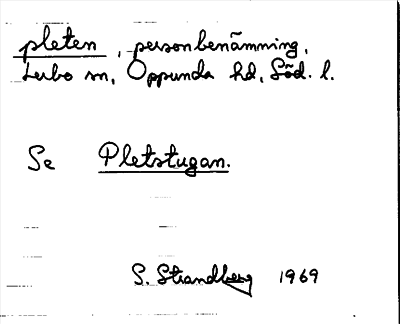 pleten, personbenämning,
Lerbo sn, Oppunda hd, Söd. l.
Se Pletstugan.
S. Strandberg 1969